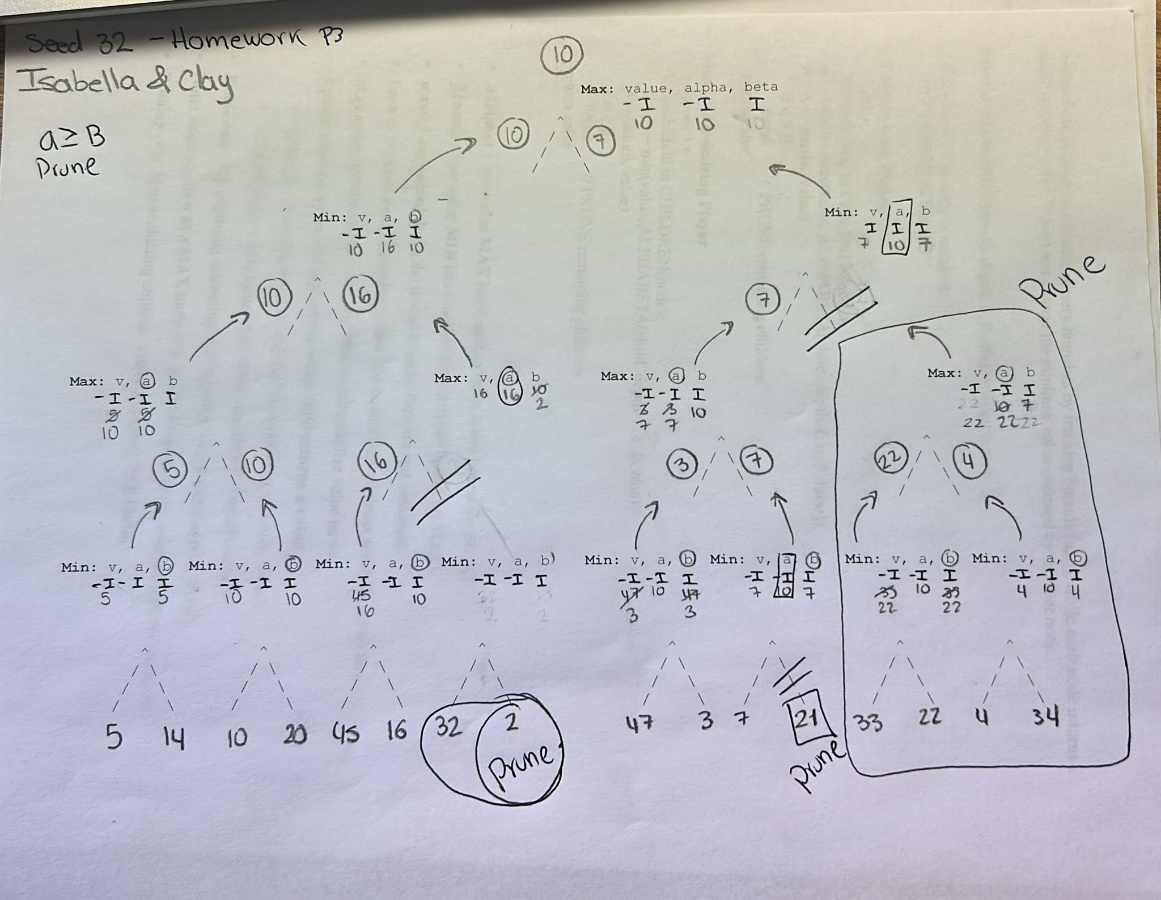 Seed 32 - Homework P3
Isabella & Clay
a ≥ B
Prune
10
Max: value, alpha, beta
-I -I I
10 10 10
10 7
Min: v, a, b
-I -I I
10 16 10
Min: v, a, b
I I I
7 10 7
10 16
7
Prune
Max: v, a, b
-I -I I
5 5
10 10
Max: v, a, b
16 16 10
2
Max: v, a, b
-I -I I
3 3 10
7 7
Max: v, a, b
-I -I I
22 10 7
22 22 22
5 10
16
3 7
22 4
Min: v, a, b
-I -I I
5 5
Min: v, a, b
-I -I I
10 10
Min: v, a, b
-I -I I
45 10
16
Min: v, a, b)
-I -I I
Min: v, a, b
-I -I I
47 10 47
3 3
Min: v, a, B
-I -I I
7 10 7
Min: v, a, b
-I -I I
33 10 33
22 22
Min: v, a, b
-I -I I
4 10 4
5 14 10 20 45 16 32 2 47 3 7 21 33 22 4 34
Prune
Prune